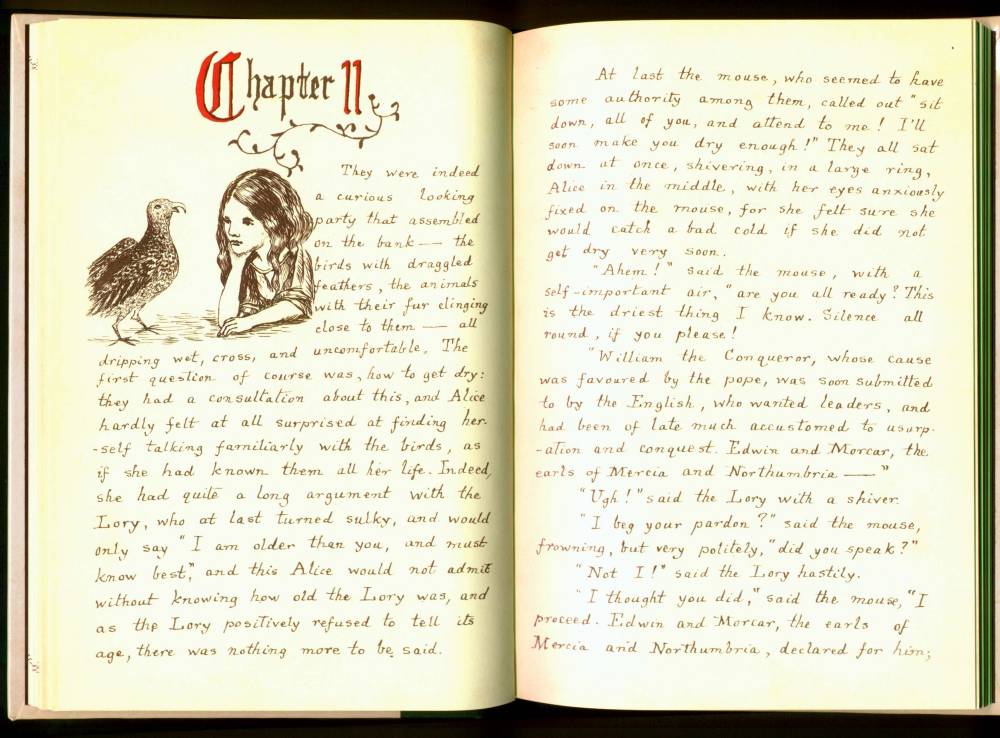 Chapter II
They were indeed
a curious looking
party that assembled
on the bank — the
birds with draggled
feathers, the animals
with their fur clinging
close to them — all
dripping wet, cross, and uncomfortable. The
first question of course was, how to get dry:
they had a consultation about this, and Alice
hardly felt at all surprised at finding her-
-self talking familiarly with the birds, as
if she had known them all her life. Indeed,
she had quite a long argument with the
Lory, who at last turned sulky, and would
only say "I am older than you, and must
know best," and this Alice would not admit
without knowing how old the Lory was, and
as the Lory positively refused to tell its
age, there was nothing more to be said.
At last the mouse, who seemed to have
some authority among them, called out "sit
down, all of you, and attend to me! I'll
soon make you dry enough!" They all sat
down at once, shivering, in a large ring,
Alice in the middle, with her eyes anxiously
fixed on the mouse, for she felt sure she
would catch a bad cold if she did not
get dry very soon.
"Ahem!" said the mouse, with a
self-important air, "are you all ready? This
is the driest thing I know. Silence all
round, if you please!
"William the Conqueror, whose cause
was favoured by the pope, was soon submitted
to by the English, who wanted leaders, and
had been of late much accustomed to usurp-
-ation and conquest. Edwin and Morcar, the
earls of Mercia and Northumbria —"
"Ugh!" said the Lory with a shiver.
"I beg your pardon?" said the mouse,
frowning, but very politely, "did you speak?"
"Not I!" said the Lory hastily.
"I thought you did," said the mouse, "I
proceed. Edwin and Morcar, the earls of
Mercia and Northumbria, declared for him;